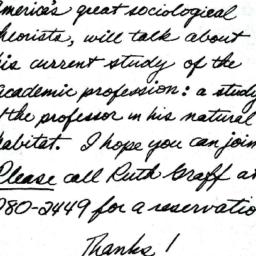 merica's great sociological
heorists, will talk about
is current study of the
academic profession: a study
f the professor in his natural
habitat. I hope you can join
Please call Ruth Graff a
980-2449 for a reservatio
Thanks!